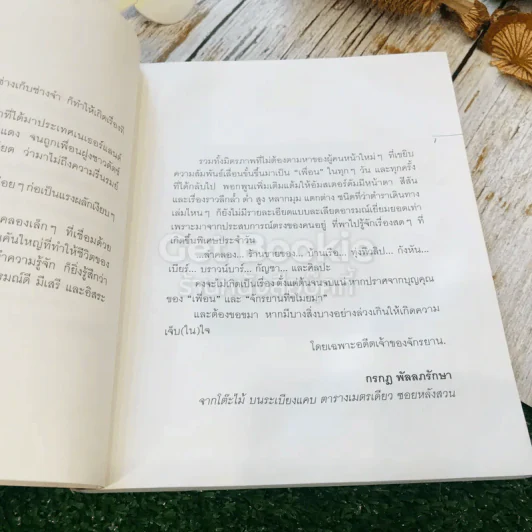 ช่างเก็บช่างจำ ก็ทำให้เกิดเรื่องอี
ที่ได้มาประเทศเนเธอร์แลนด์
แดง จนถูกเพื่อนฝูงชาวดัตช์
ยด ว่ามาไม่ถึงความรื่นรมย์
่อยๆ ก่อเป็นแรงผลักเงียบๆ
คลองเล็กๆ ที่เชื่อมด้วย
คันใหญ่ที่ทำให้ชีวิตของ
ำความรู้จัก ก็ยิ่งรู้สึกว่า
รมณ์ดี มีเสรี และอิสระ
รวมทั้งมิตรภาพที่ไม่ต้องตามหาของผู้คนหน้าใหม่ๆ ที่เขยิบ
ความสัมพันธ์เลื่อนขั้นขึ้นมาเป็น "เพื่อน" ในทุกๆ วัน และทุกครั้ง
ที่ได้กลับไป พอกพูนเพิ่มเติมแต้มให้อัมสเตอร์ดัมมีหน้าตา สีสัน
และเรื่องราวลึกล้ำ ต่ำ สูง หลากมุม แตกต่าง ชนิดที่ว่าตำราเดินทาง
เล่มไหนๆ ก็ยังไม่มีรายละเอียดแบบละเอียดอารมณ์เยี่ยมยอดเท่า
เพราะมาจากประสบการณ์ตรงของคนอยู่ ที่พาไปรู้จักเรื่องสดๆ ที่
เกิดขึ้นพิเศษประจำวัน
ลำคลอง... ร้านขายของ... บ้านเรือ... ทุ่งทิวลิป... กังหัน...
เบียร์... บราวน์บาร์... กัญชา... และศิลปะ
คงจะไม่เกิดเป็นเรื่อง ตั้งแต่ต้นจนจบนี้ หากปราศจากบุญคุณ
ของ "เพื่อน" และ "จักรยานที่ขโมยมา"
และต้องขอขมา หากมีบางสิ่งบางอย่างล่วงเกินให้เกิดความ
เจ็บ(ใน)ใจ
โดยเฉพาะอดีตเจ้าของจักรยาน.
กรกฎ พัลลภรักษา
จากโต๊ะไม้ บนระเบียงแคบ ตารางเมตรเดียว ซอยหลังสวน
Get Bookie